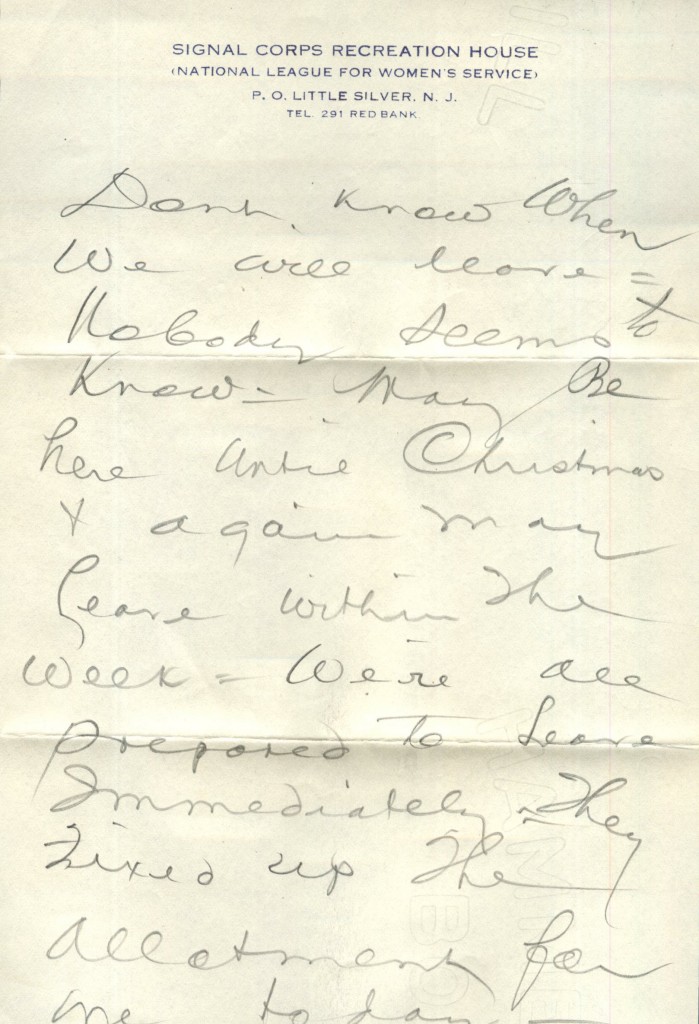 SIGNAL CORPS RECREATION HOUSE
(NATIONAL LEAGUE FOR WOMEN'S SERVICE)
P. O. LITTLE SILVER, N. J.
TEL. 291 RED BANK
Dont know When
We will leave =
Nobody seems to
Know = May Be
here until Christmas
& again may
leave within the
week = We're all
prepared to leave
Immediately = They
Fixed up the
allotment for
me today =